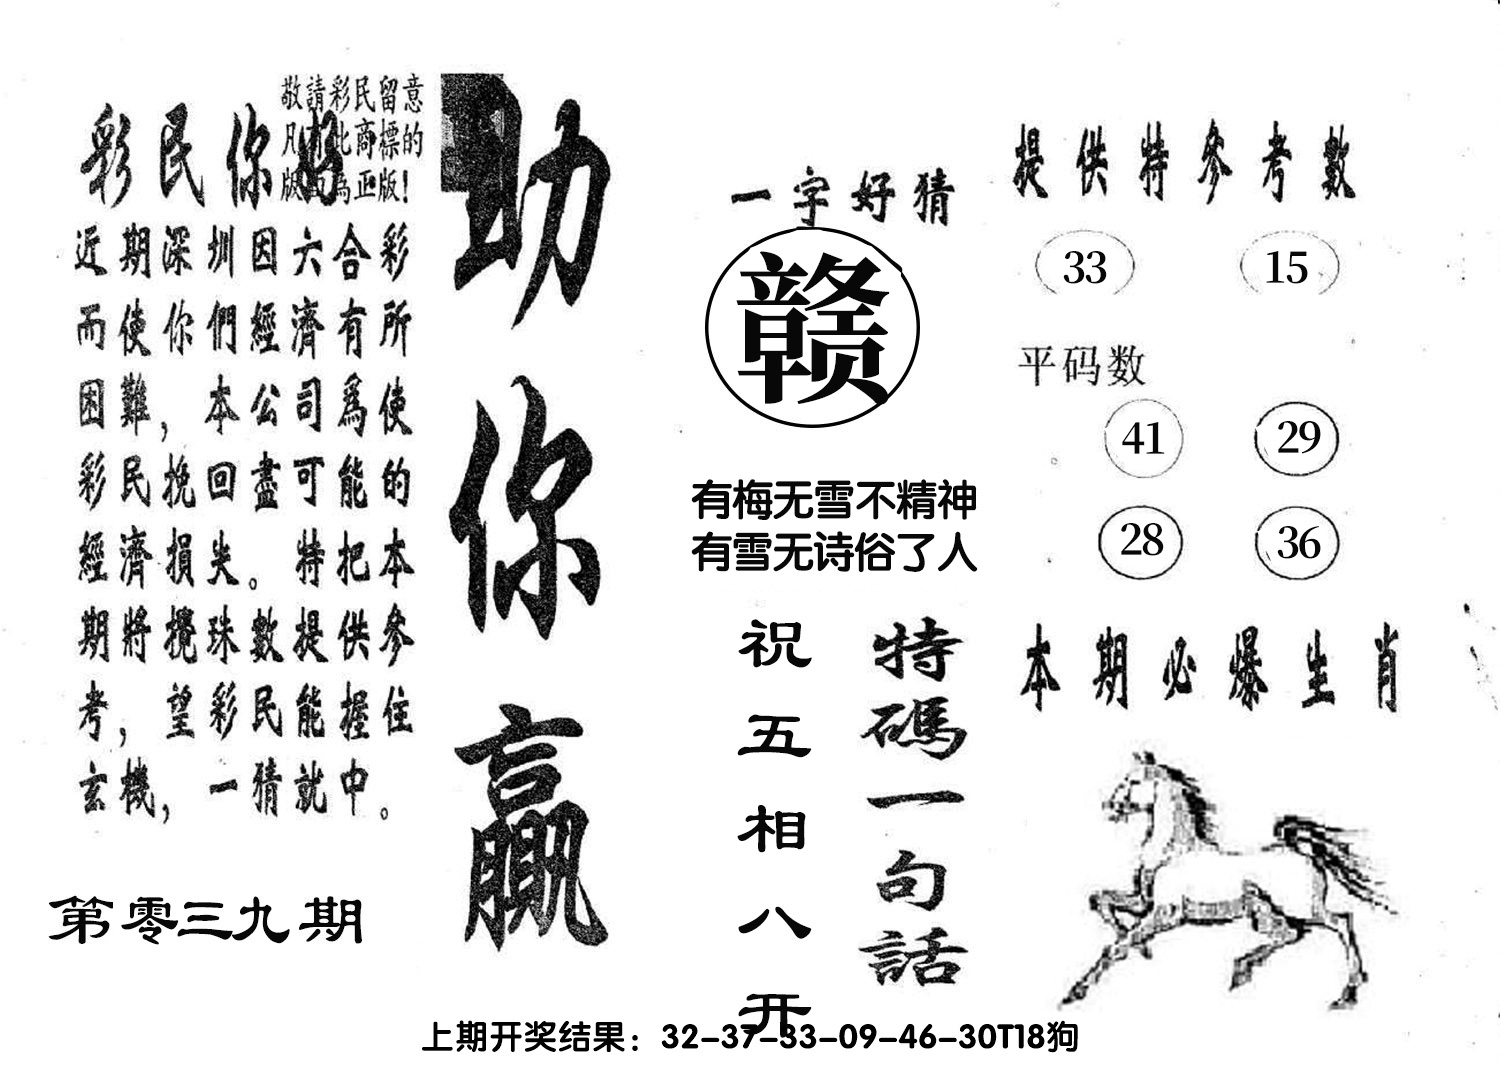 敬請彩民留意
凡有此商標的
版面為正版！
彩民你好
近期深圳因六合彩
而使你們經濟有所
困難，本公司爲使
彩民挽回盡可能的
經濟損失。特把本
期將攪珠數提供參
考，望彩民能握住
玄機，一猜就中。
第零三九期
助你贏
一字好猜
赣
有梅无雪不精神
有雪无诗俗了人
特碼一句話
祝五相八开
提供特參考數
33 15
平码数
41 29
28 36
本期必爆生肖
上期开奖结果：32-37-33-09-46-30T18狗